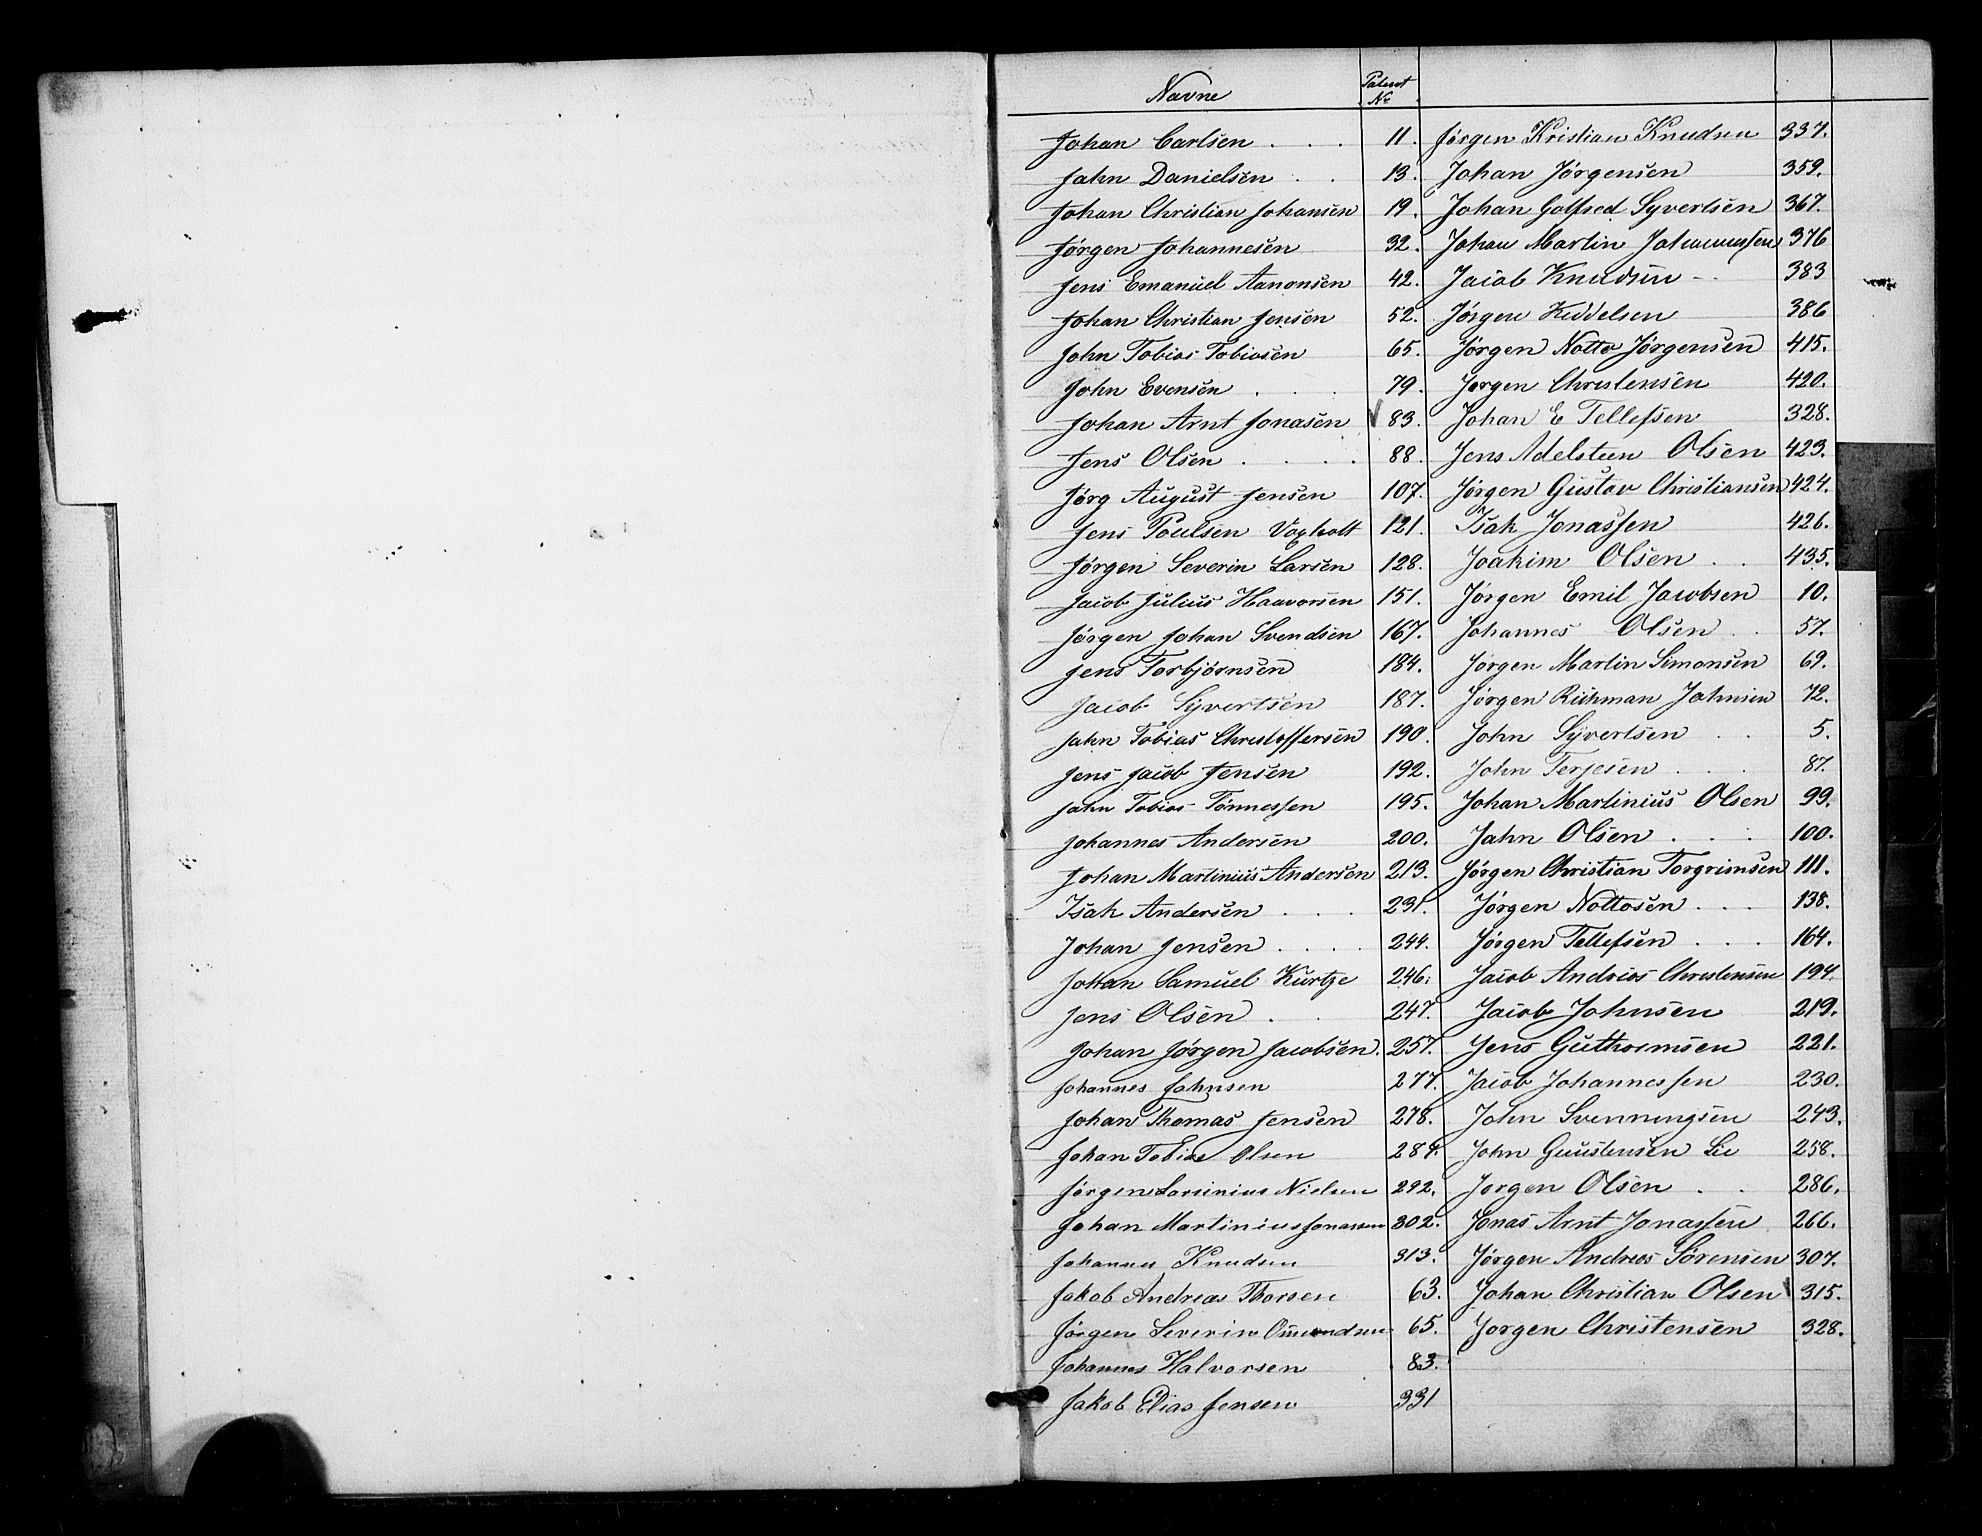 Navne Patent Nr
Johan Carlsen . . . 11.
Jahn Danielsen . . 13.
Johan Christian Johansen 19.
Jørgen Johannesen 32.
Jens Emanuel Aanonsen 42.
Johan Christian Jensen 52.
John Tobias Tobiasen 65.
John Evensen . . . 79.
Johan Arnt Jonasen 83.
Jens Olsen . . . . 88.
Jørg August Jensen 107.
Jens Poulsen 121.
Jørgen Severin Larsen 128.
Jacob Julius Haavorsen 151.
Jørgen Johan Svendsen 167.
Jens Torbjørnsen 184.
Jacob Syvertsen 187.
Jahn Tobias Christoffersen 190.
Jens Jacob Jensen 192.
Jahn Tobias Tønnessen 195.
Johannes Andersen 200.
Johan Martinius Andersen 213.
Isak Andersen . . . 231.
Johan Jensen . . . . 244.
Johan Samuel Kurtze 246.
Jens Olsen . . 247.
Johan Jørgen Jacobsen. 257.
Johannes Jahnsen 277.
Johan Thomas Jensen 278.
Johan Tobias Olsen 284.
Jørgen Larsinius Nielsen 292.
Johan Martinius Jonassen 302.
Johannes Knudsen 313.
Jakob Andreas Thorsen 63.
Jørgen Severin Omundsen 65.
Johannes Halvorsen 83.
Jakob Elias Jensen 331
Jørgen Kristian Knudsen 337.
Johan Jørgensen 359.
Johan Gotfred Syvertsen 367.
Johan Martin Johannessen 376
Jacob Knudsen 383
Jørgen Kiddelsen 386
Jørgen Notto Jørgensen 415.
Jørgen Christensen 420.
Johan E Tellefsen 328.
Jens Adelsteen Olsen 423.
Jørgen Gustav Christiansen 424.
Isak Jonassen 426.
Joakim Olsen . . 435.
Jørgen Emil Jacobsen 10.
Johannes Olsen . . 57.
Jørgen Martin Simonsen 69.
Jørgen Richman Johnsen 72.
John Syvertsen . . 5.
John Terjesen . . . 87.
Johan Martinius Olsen 99.
Jahn Olsen . . . 100.
Jørgen Christian Torgrimsen 111.
Jørgen Nottosen . . . 138.
Jørgen Tellefsen . . . 164.
Jacob Andreas Christensen 194.
Jacob Johnsen 219.
Jens Guthormsen 221.
Jacob Johannessen 230.
John Svenningsen 243.
John Guustensen Lie 258.
Jorgen Olsen . . 286.
Jonas Arnt Jonassen 266.
Jørgen Andreas Sørensen 307.
Johan Christian Olsen 315.
Jorgen Christensen 328.